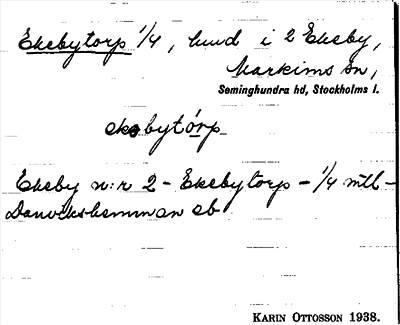 Ekebytorp 1/4, lund i 2 Ekeby,
Markims sn,
Seminghundra hd, Stockholms l.
ekebytórp
Ekeby n:r 2 - Ekebytorp - 1/4 mtl -
Danvikshemman eb
KARIN OTTOSSON 1938.